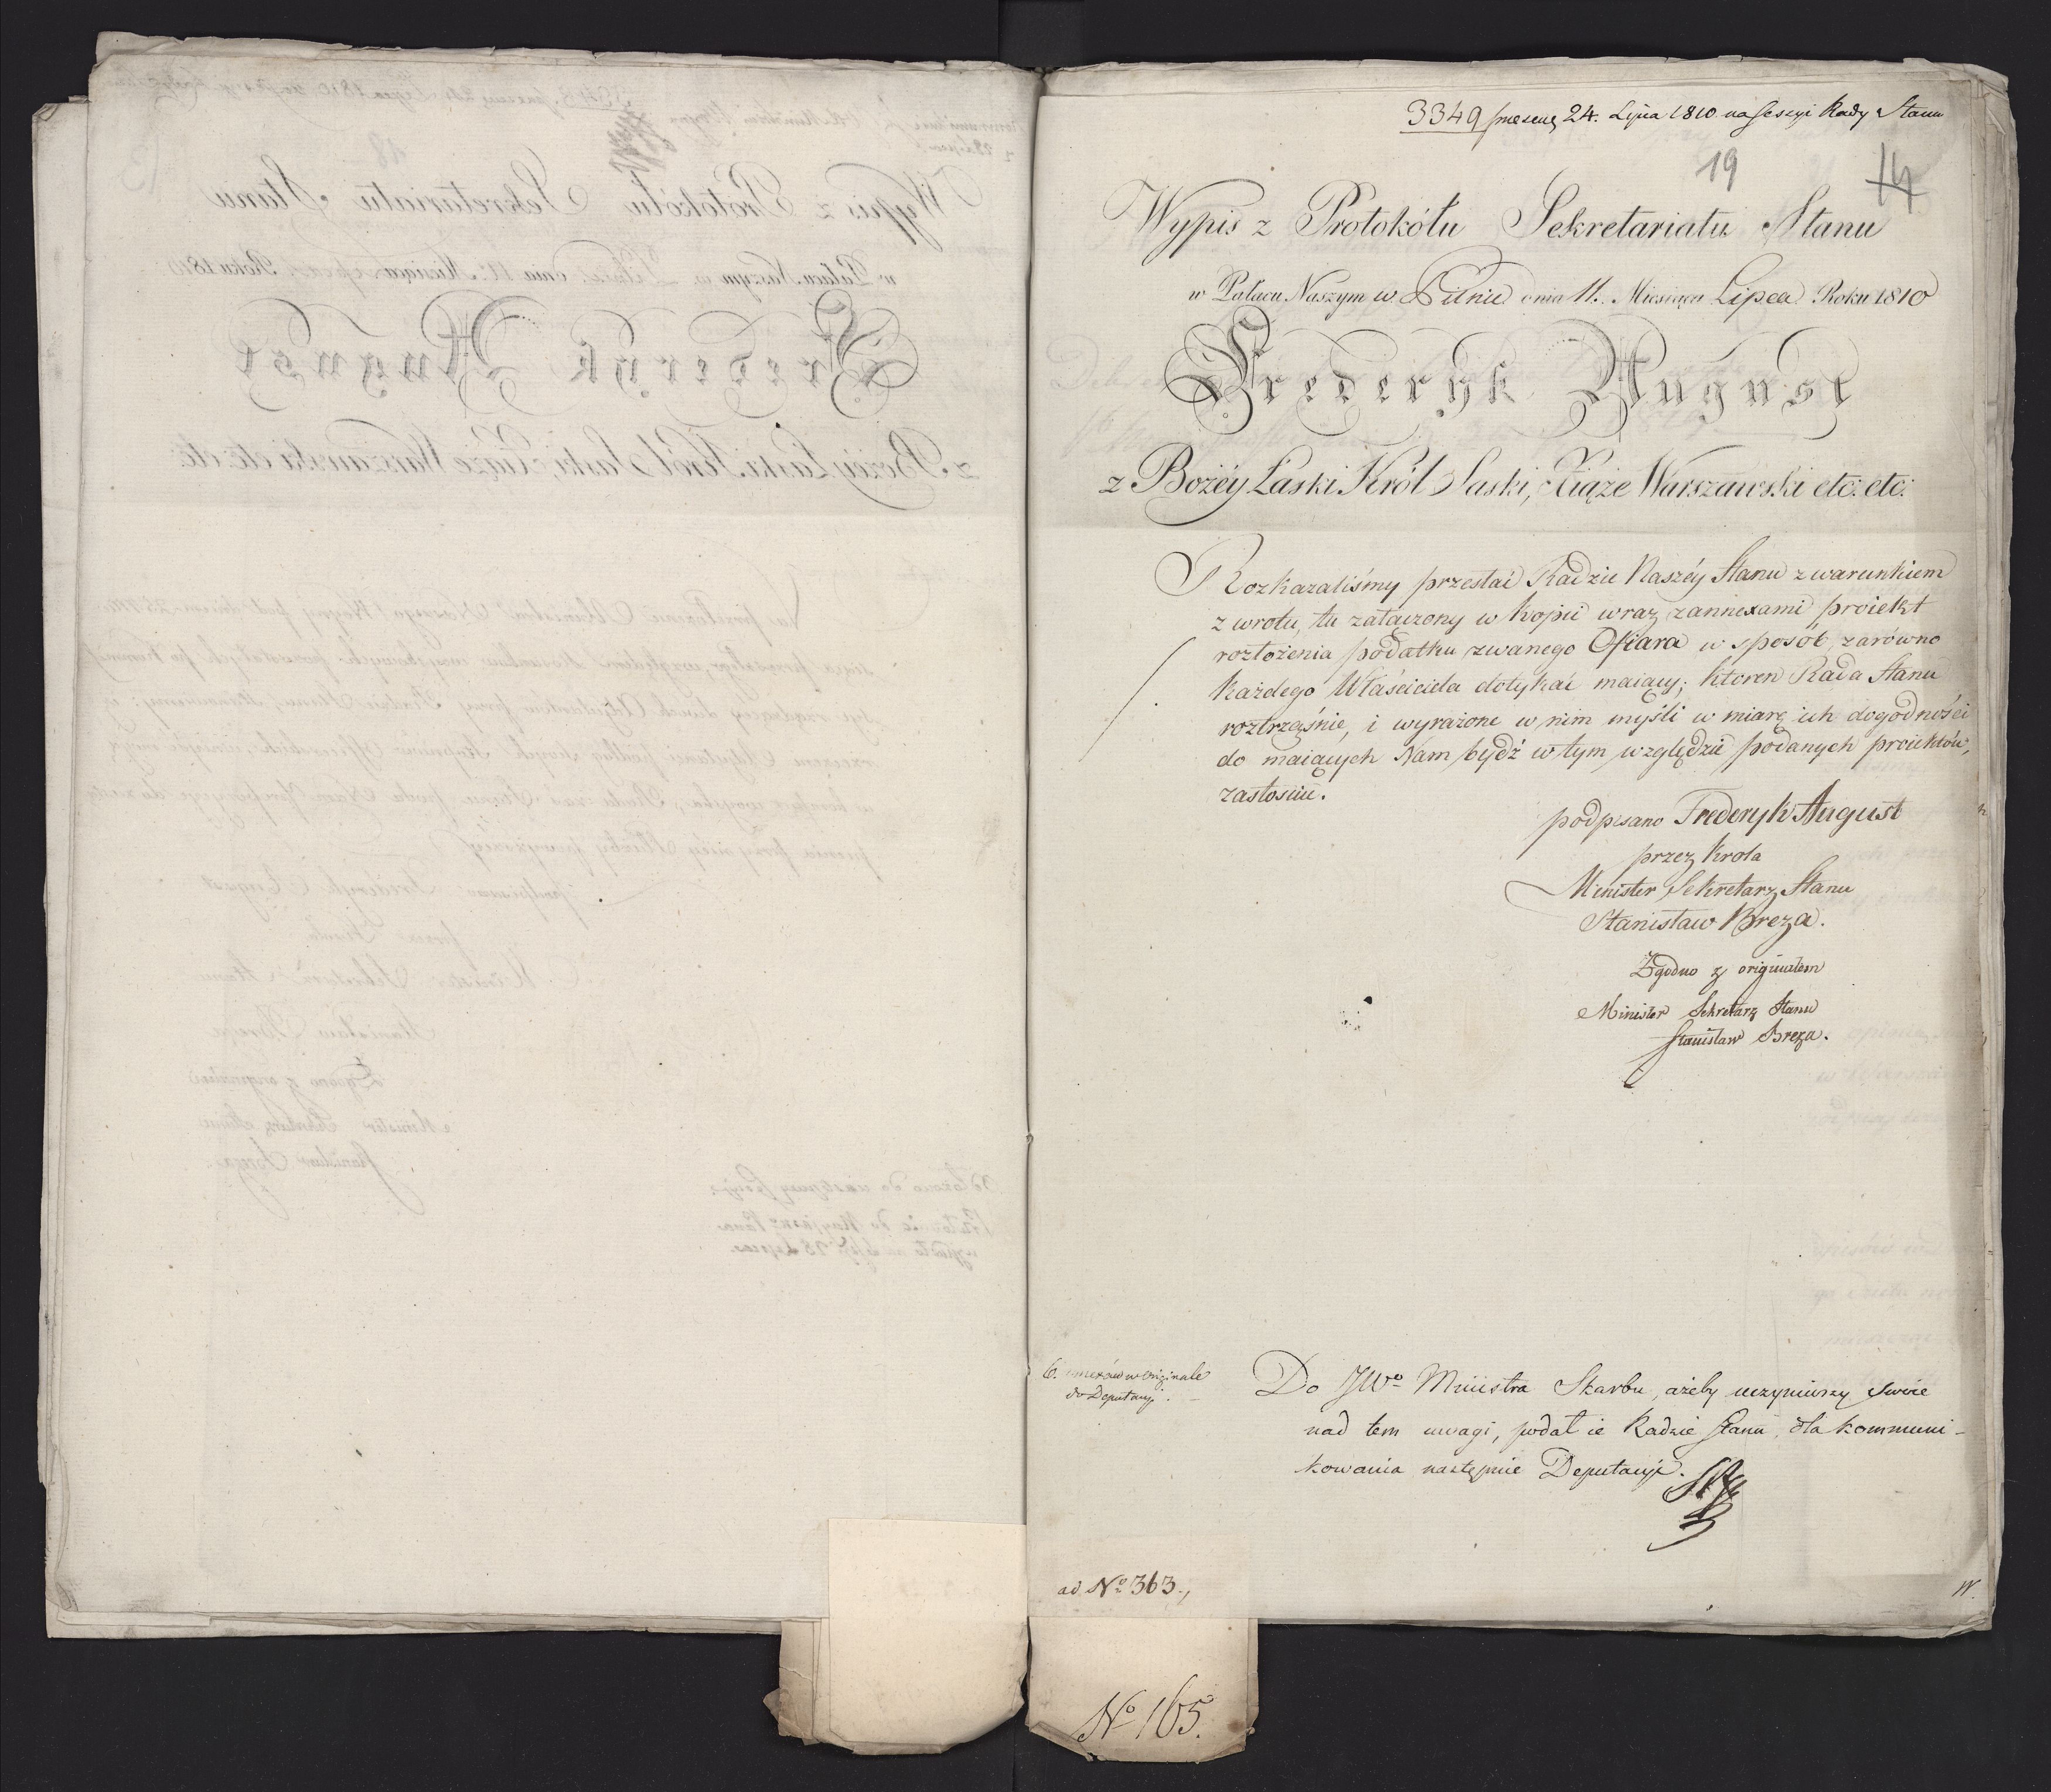 3349 24. Lipca 1810 na Sessyi Rady Stanu
19
14
Wypis z Protokółu Sekretariatu Stanu
w Pałacu Naszym w Pilnic dnia 11. Miesiąca Lipca Roku 1810
Fryderyk August
z Bożéy Łaski Król Saski, Xiąże Warszawski etc: etc:
Rozkazaliśmy przesłać Radzie Naszéy Stanu z warunkiem
zwrotu, tu załączony w kopii wraz z annexami proiekt
rozłożenia podatku zwanego Ofiara w sposób, zarówno
każdego Właściciela dotykać maiący; ktoren Rada Stanu
roztrząśnie, i wyrażone w nim myśli w miarę ich dogodności
do maiących Nam bydź w tym względzie podanych proiektów,
zastosuie.
podpisano Frederyk August
przez Krola
Minister Sekretarz Stanu
Stanisław Breza.
Zgodno z originałem
Minister Sekretarz Stanu
Stanisław Breza.
6. w originale
do Deputacyi.
Do JWo Ministra Skarbu, ażeby uczyniwszy swoie
nad tem uwagi, podał ie Radzie Stanu, dla kommuni-
kowania następnie Deputacyi.
ad No 363.,
No 165.